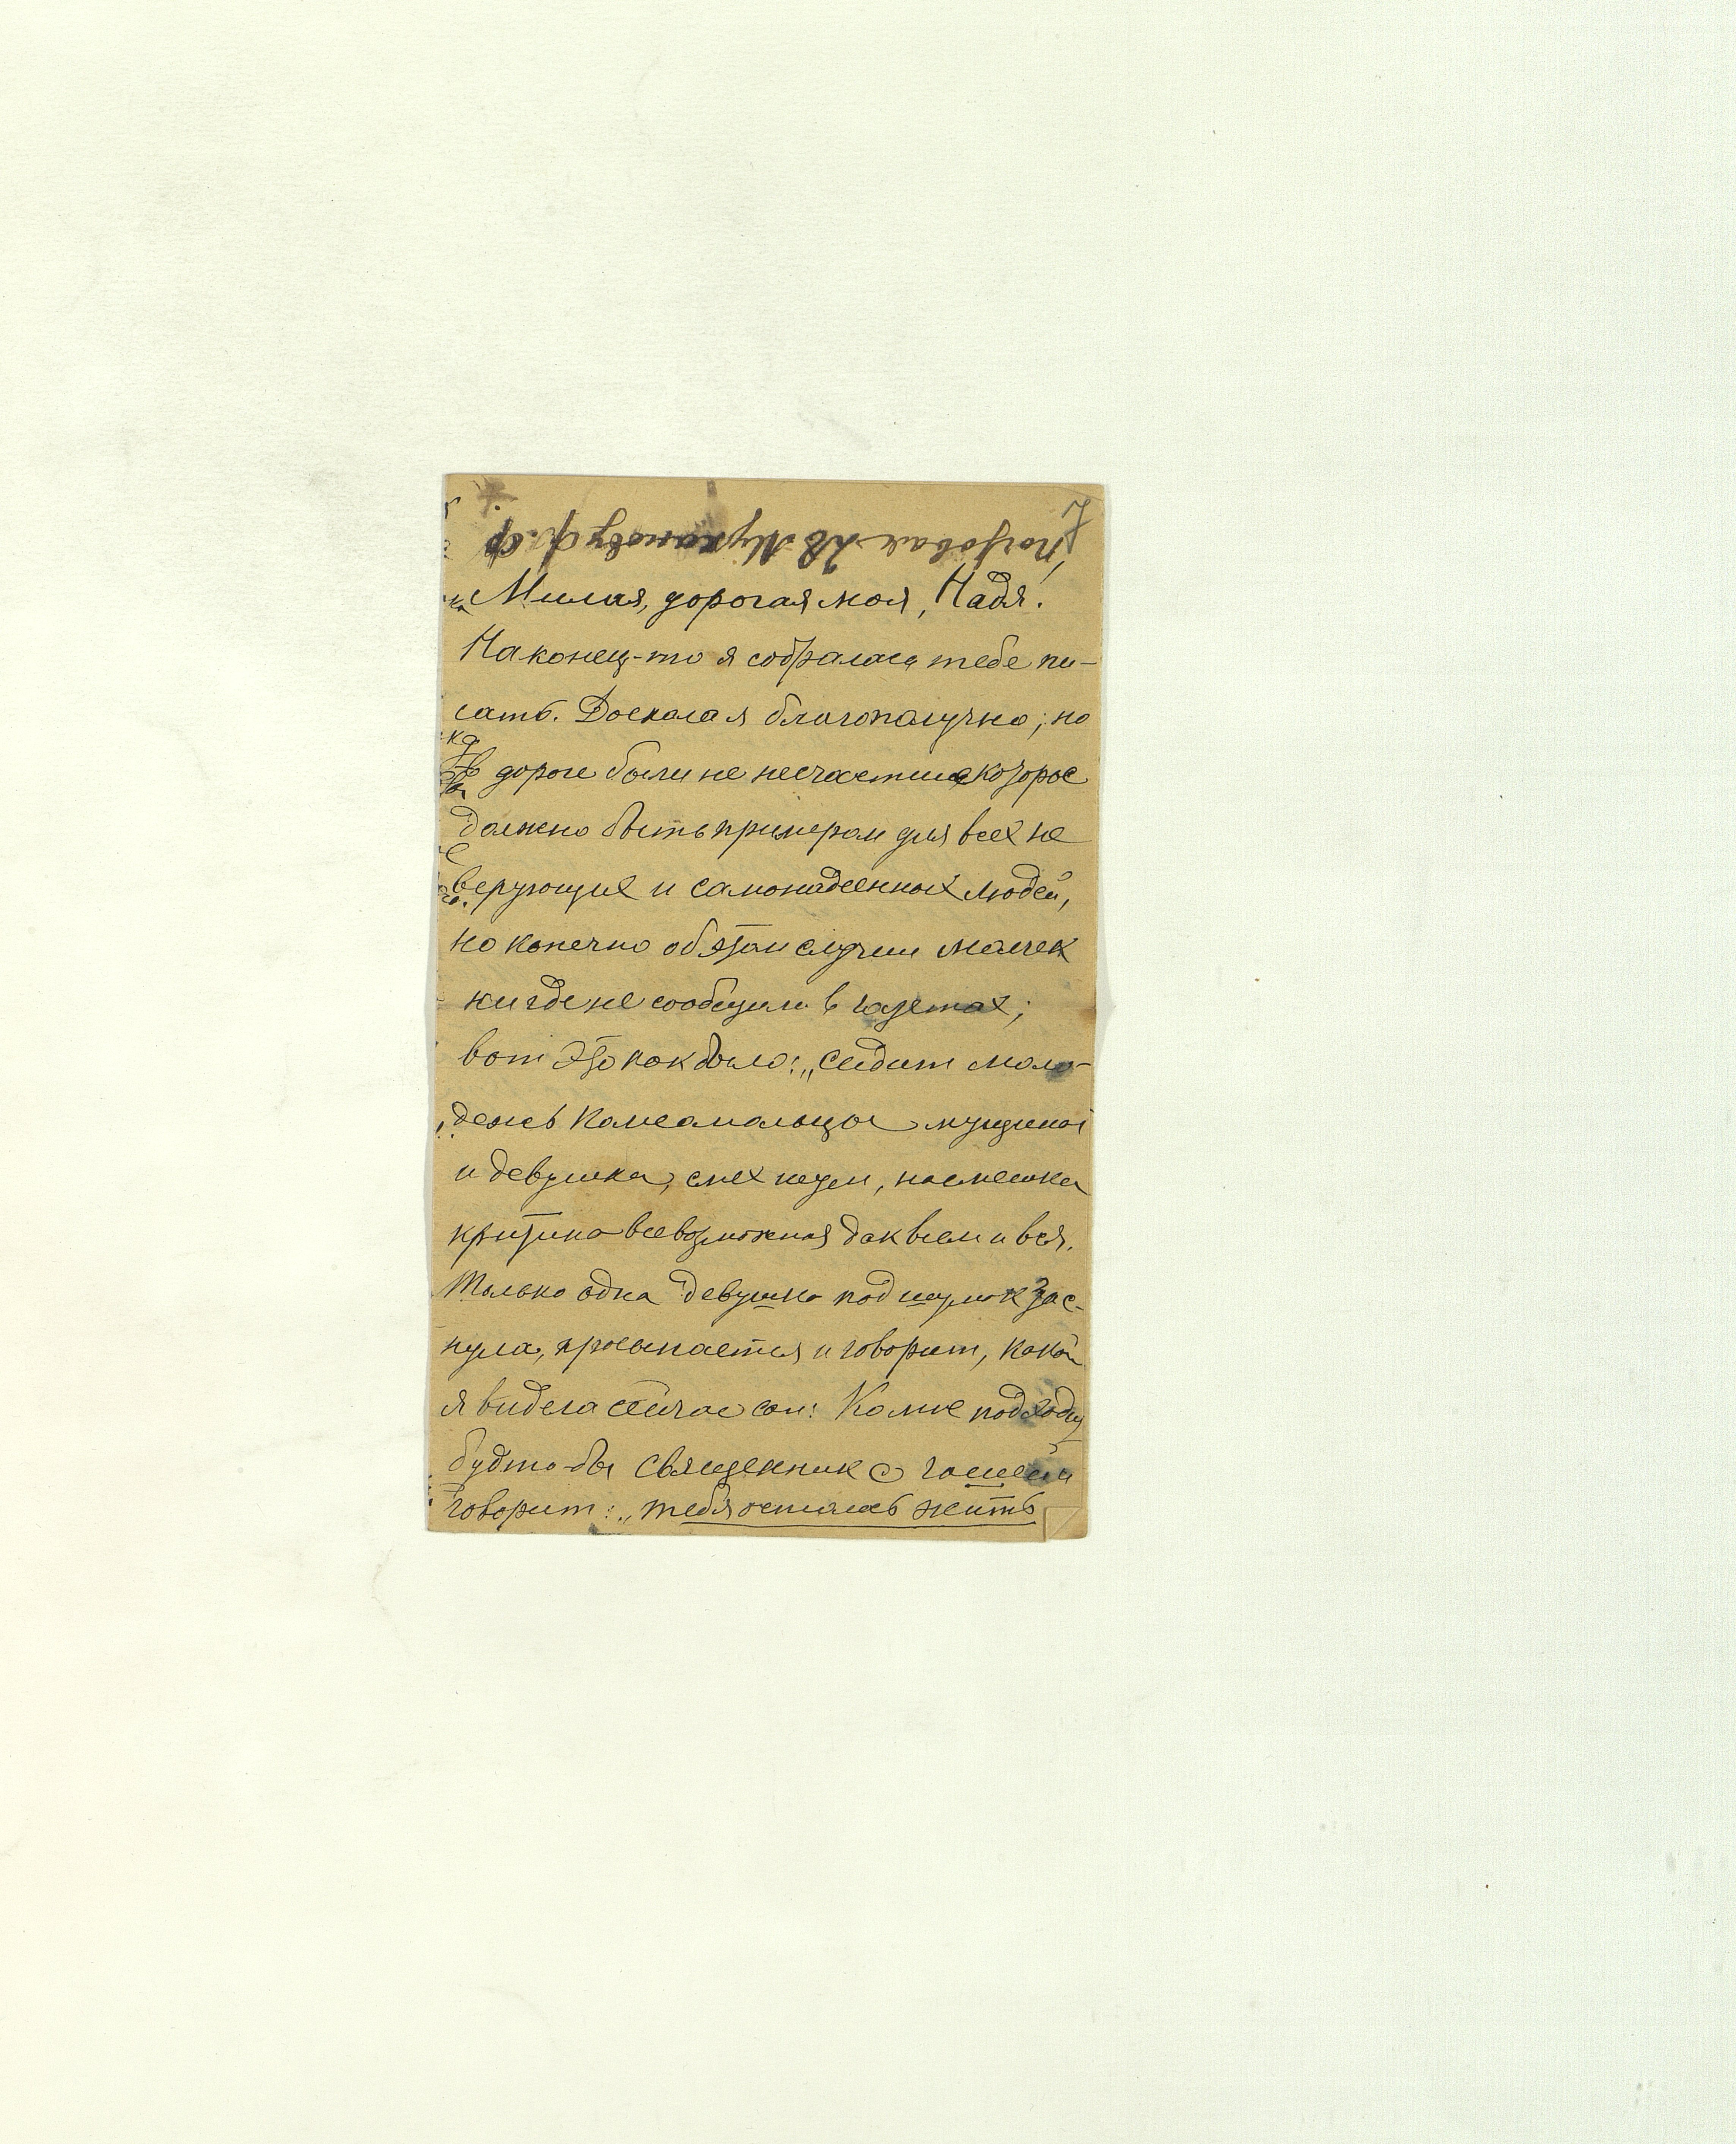 Милая, дорогая моя, Надя!
Наконец-то я собралась тебе пи-
сать. Доехала я благополучно, но
в дороге были не несчастие которое
должно быть примером для всех не
верующих и самонадеенных людей,
но конечно об этом случии
нигде не сообщили в газетах;
вот это как было: „Сидит моло-
дежь Камсамольцы мущины
и девушка, смех шум, насмешка
критика всевозможная
Только одна девушка под шумок зас-
нула, просыпается и говорит, какой
я видела сейчас сон: Ко мне подходи
будто-бы священник с чашей и
говорит: „тебя осталось жить